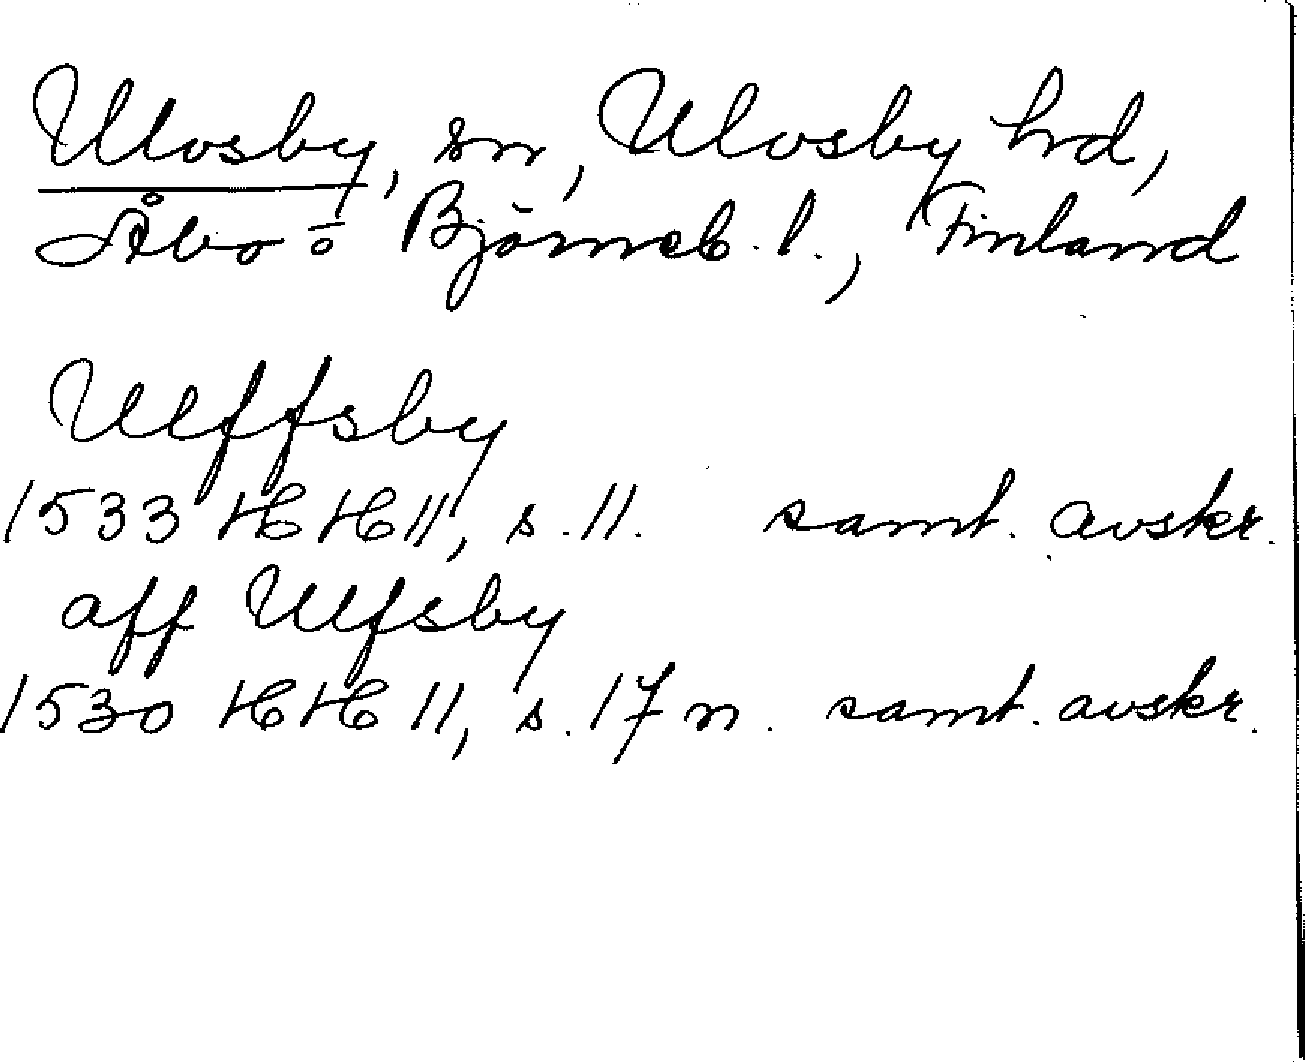 Ulvsby, sn, Ulvsby hd,
Åbo o Björneb. l., Finland
Ulffsby
1533 HH II, s. 11. samt. avskr.
aff Ulfsby
1530 HH II, s. 17 n. samt. avskr.